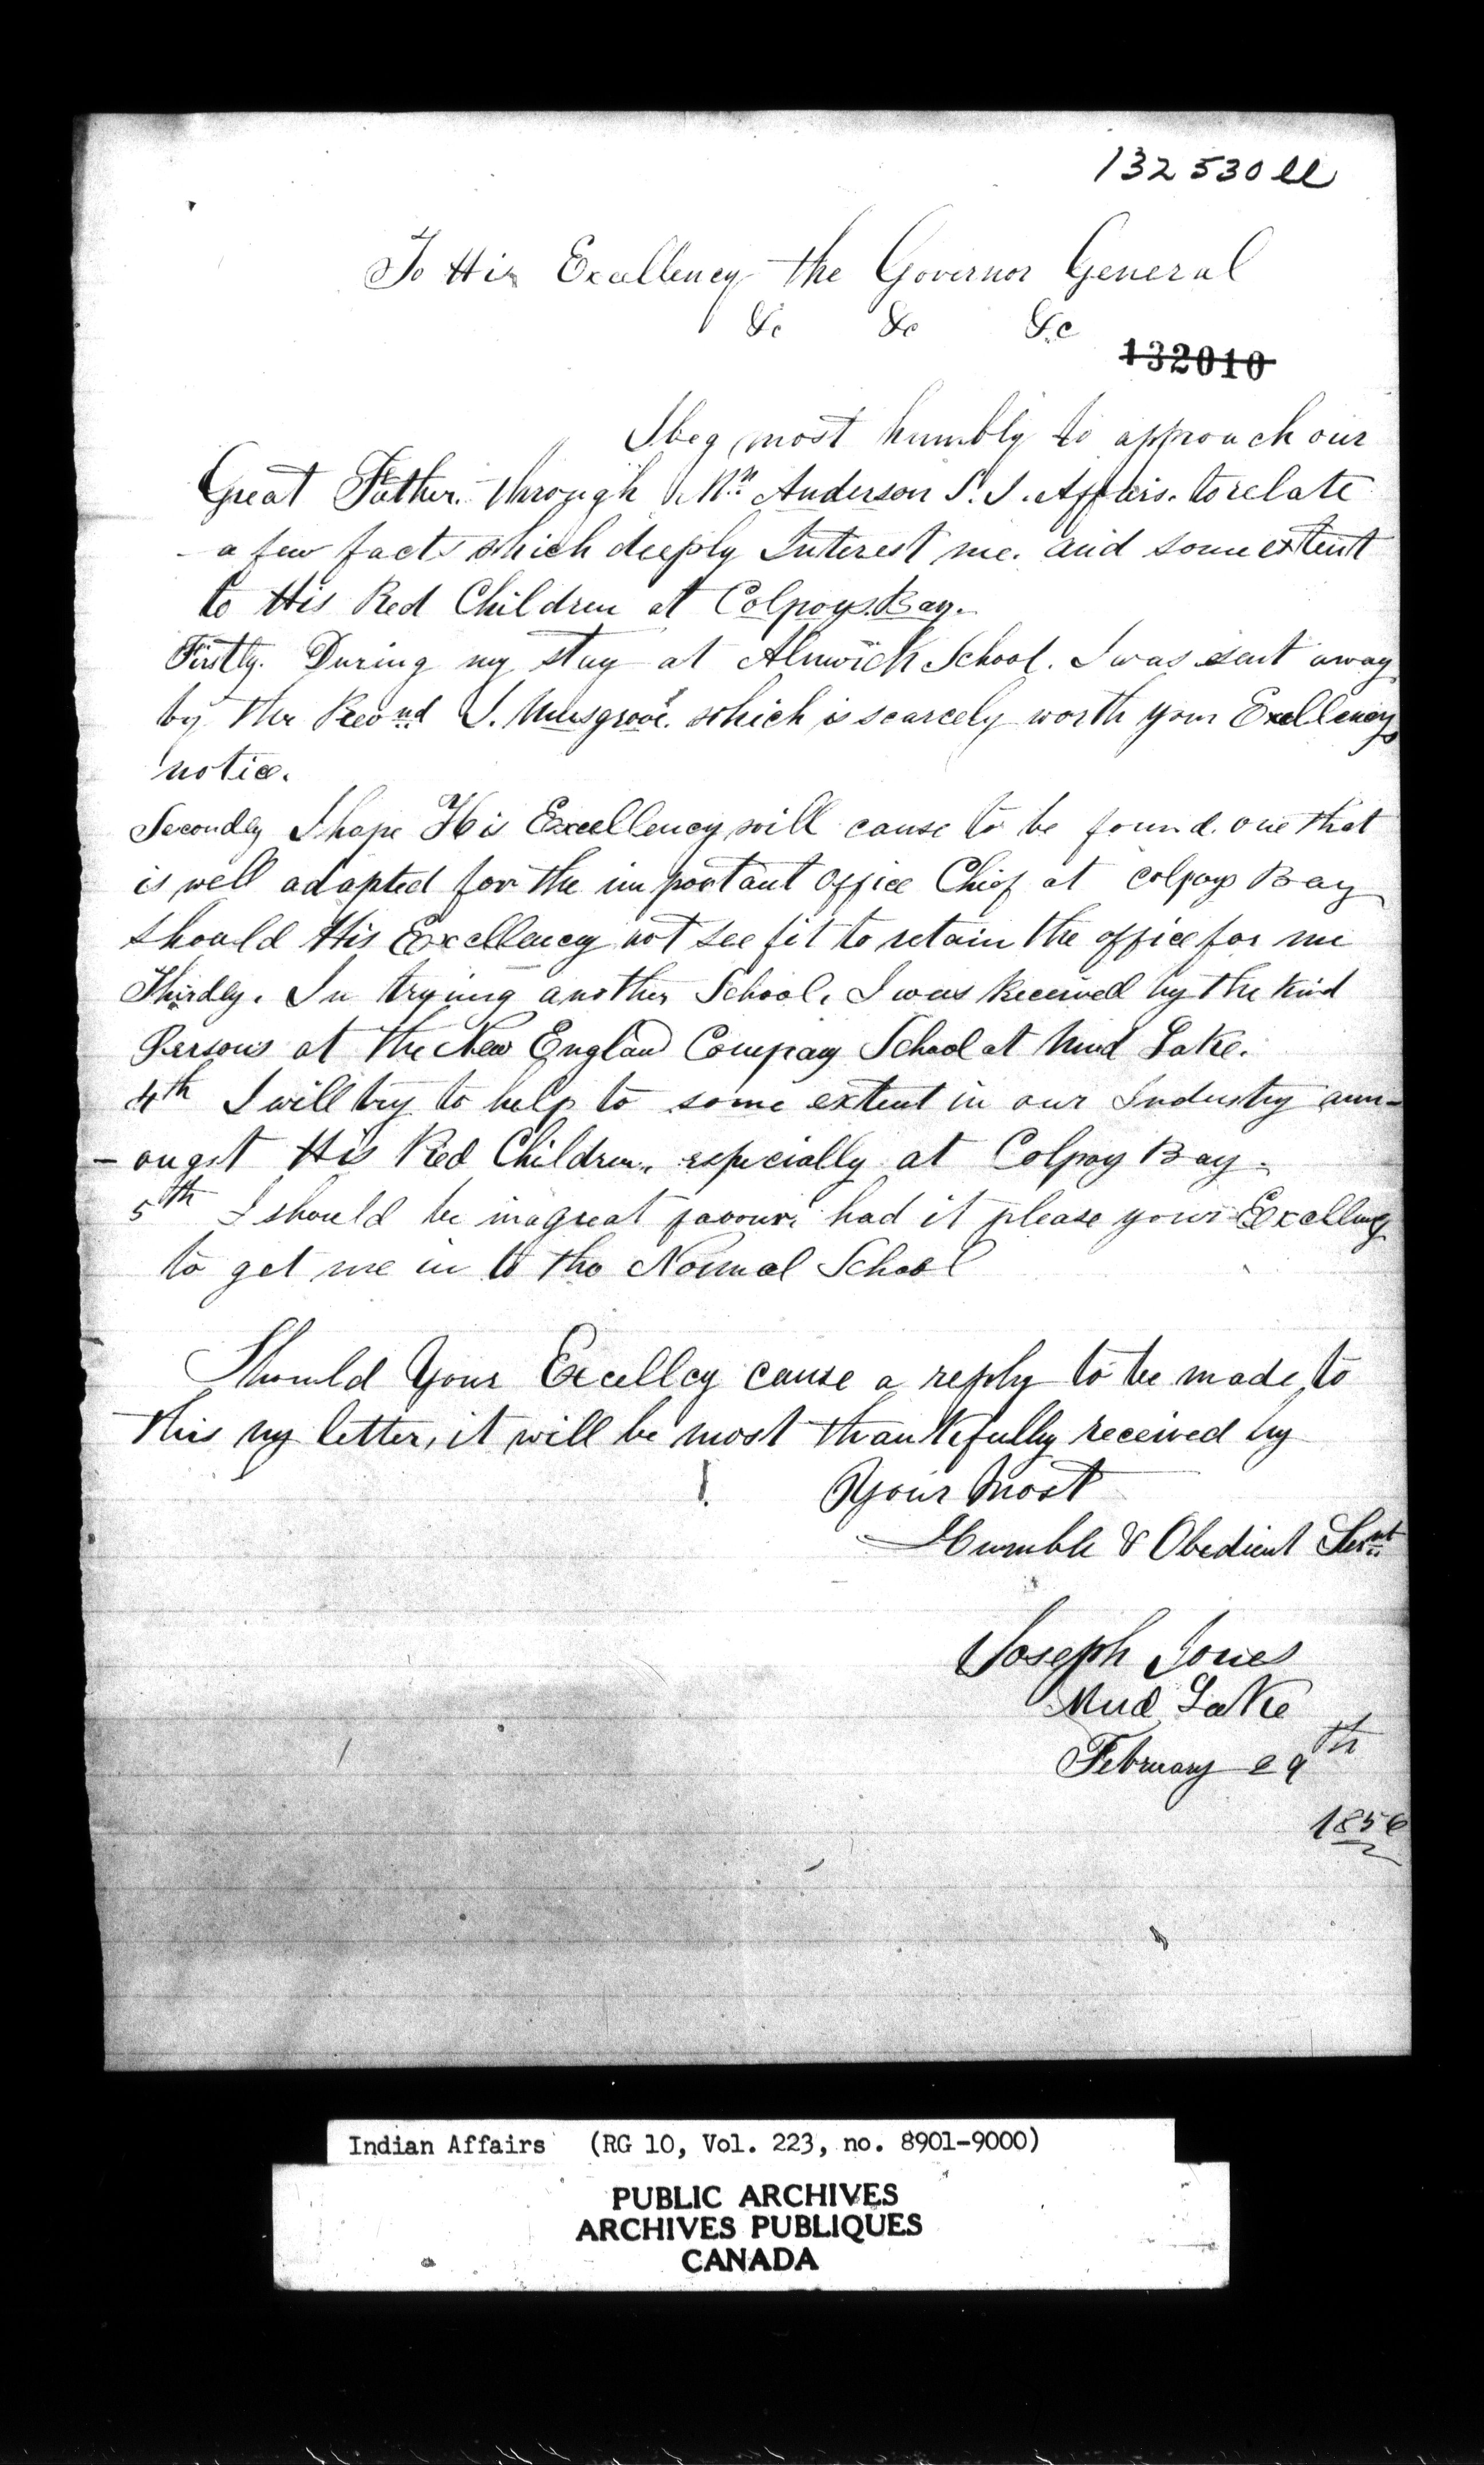 132530ll
To His Excellency the Governor General
&c &c &c
132010
I beg most humbly to approach our
Great Father. through Mr. Anderson S. I. Affairs. to relate
a few facts which deeply Interest me. and some extent
to His Red Children at Colpoys Bay.
Firstly. During my stay at Alnwick School. I was sent away
by the Revnd S. Musgrove. which is scarcely worth your Excellencys
notice.
Secondly I hope His Excellency will cause to be found. one that
is well adapted for the important office Chief at Colpoys Bay
should His Excellency not see fit to retain the office for me
Thirdly. In trying another School. I was Received by the kind
Persons at the New England Company School at Mud Lake.
4th I will try to help to some extent in our Industry am-
-ongst His Red Children. especially at Colpoy Bay.
5th I should be in a great favour. had it please your Excellency
to get me in to the Normal School
Should Your Excellcy cause a reply to be made to
this my letter, it will be most thankefully received by
Your Most
Humble & Obedient Sernt
Joseph Jones
Mud Lake
February 29th
1856
Indian Affairs (RG 10, Vol. 223, no. 8901-9000)
PUBLIC ARCHIVES
ARCHIVES PUBLIQUES
CANADA